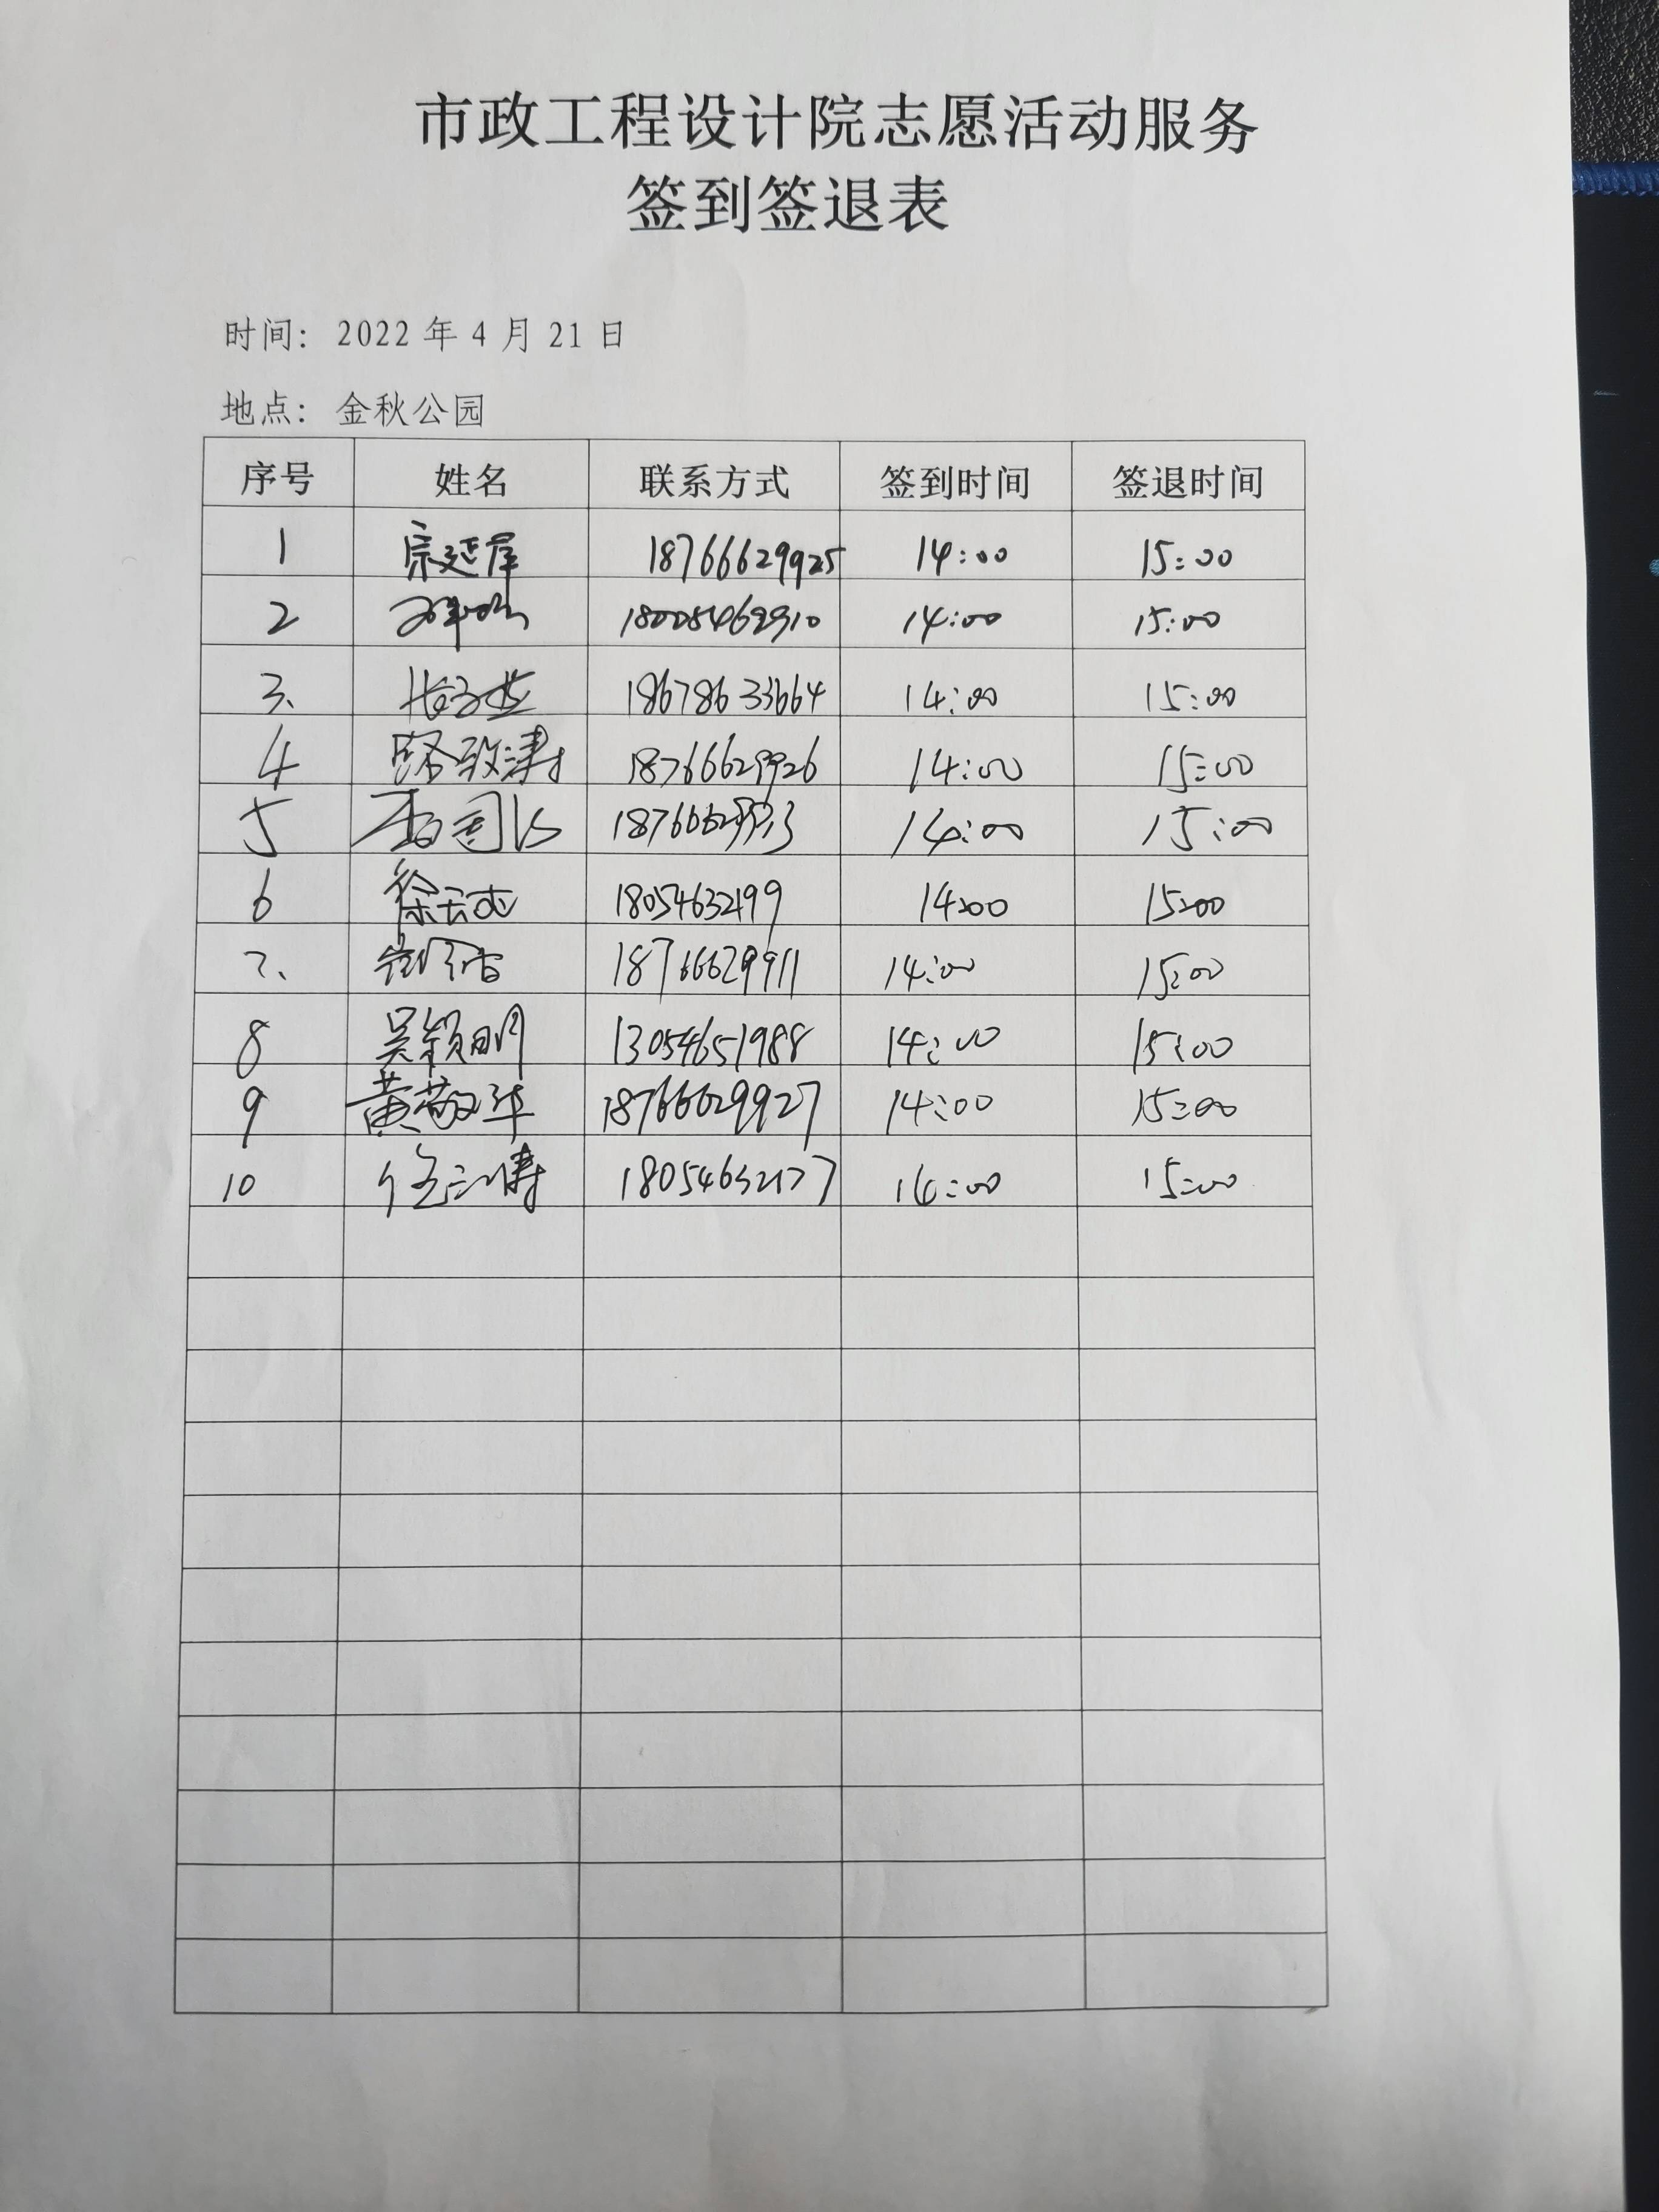 市政工程设计院志愿活动服务
签到签退表
时间: 2022年4月21日
地点: 金秋公园
序号 姓名 联系方式 签到时间 签退时间
1 宗延 18766629925 14:00 15:00
2 18005462910 14:00 15:00
3、 18678633664 14:00 15:00
4 骆致津 18766629926 14:00 15:00
5 14:00 15:00
6 徐云志 18054632199 14:00 15:00
7、 18766629911 14:00 15:00
8 吴颖明 13054651988 14:00 15:00
9 黄敬华 18766629927 14:00 15:00
10 18054632177 14:00 15:00